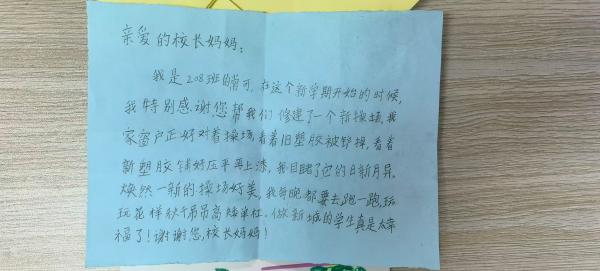 亲爱的校长妈妈：
我是208班的曾可，在这个新学期开始的时候，
我特别感谢您帮我们修建了一个新操场，我
家窗户正好对着操场，看着旧塑胶被铲掉，看着
新塑胶铺好压平再上漆，我目睹了它的日新月异。
焕然一新的操场好美，我每晚都要去跑一跑，玩
玩花样秋千，吊吊高矮单杠。做新城的学生真是太幸
福了！谢谢您，校长妈妈！